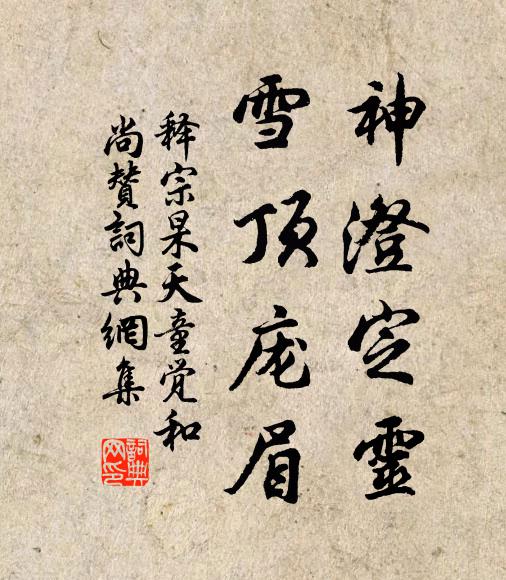 神澄定靈
雪顶庞眉
释宗杲天童觉和
尚赞詞典網集
詞典网印